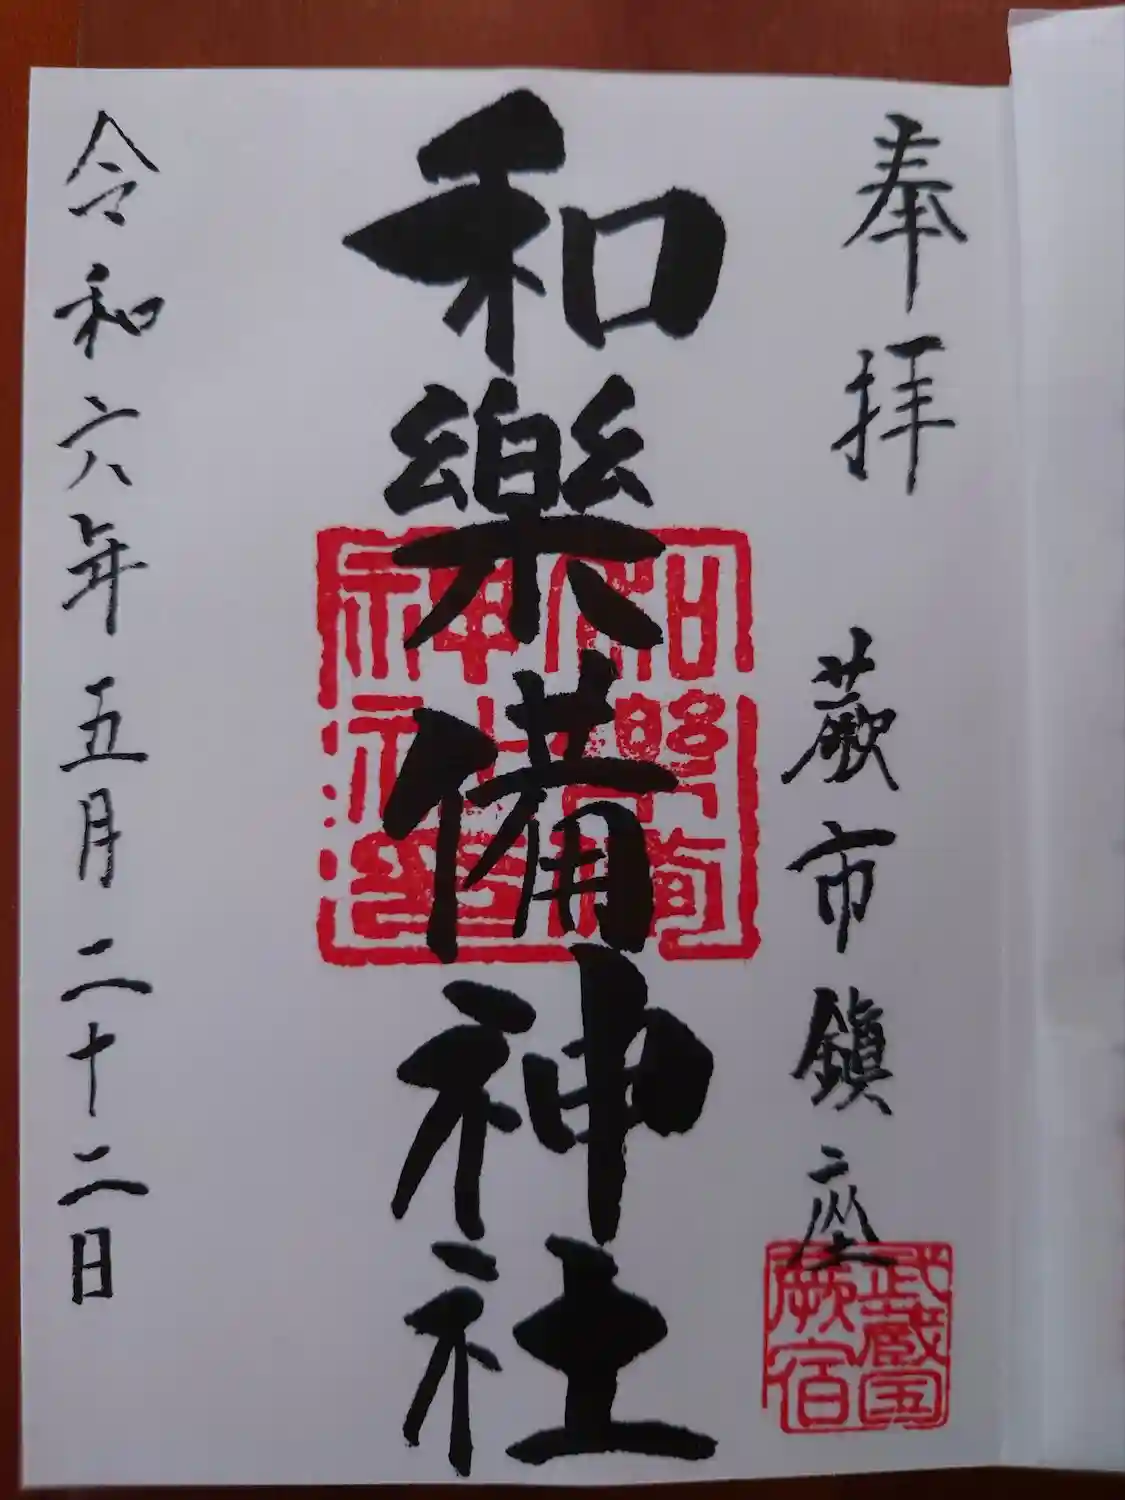 奉拝
蕨市鎮座
武蔵国
蕨宿
和樂備神社
令和六年五月二十二日